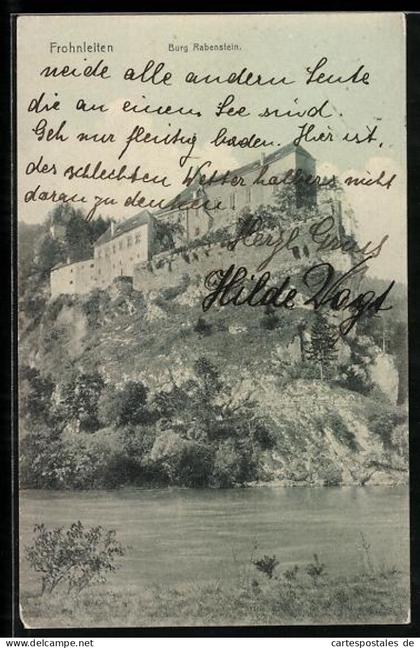 Frohnleiten Burg Rabenstein.
neide alle andern Leute
die an einem See sind.
Geh nur fleißig baden. Hier ist
des schlechten Wetter halber nicht
daran zu denken.
Herzl. Gruss
Hilde Vogt
www.cartespostales.de cartespostales.de